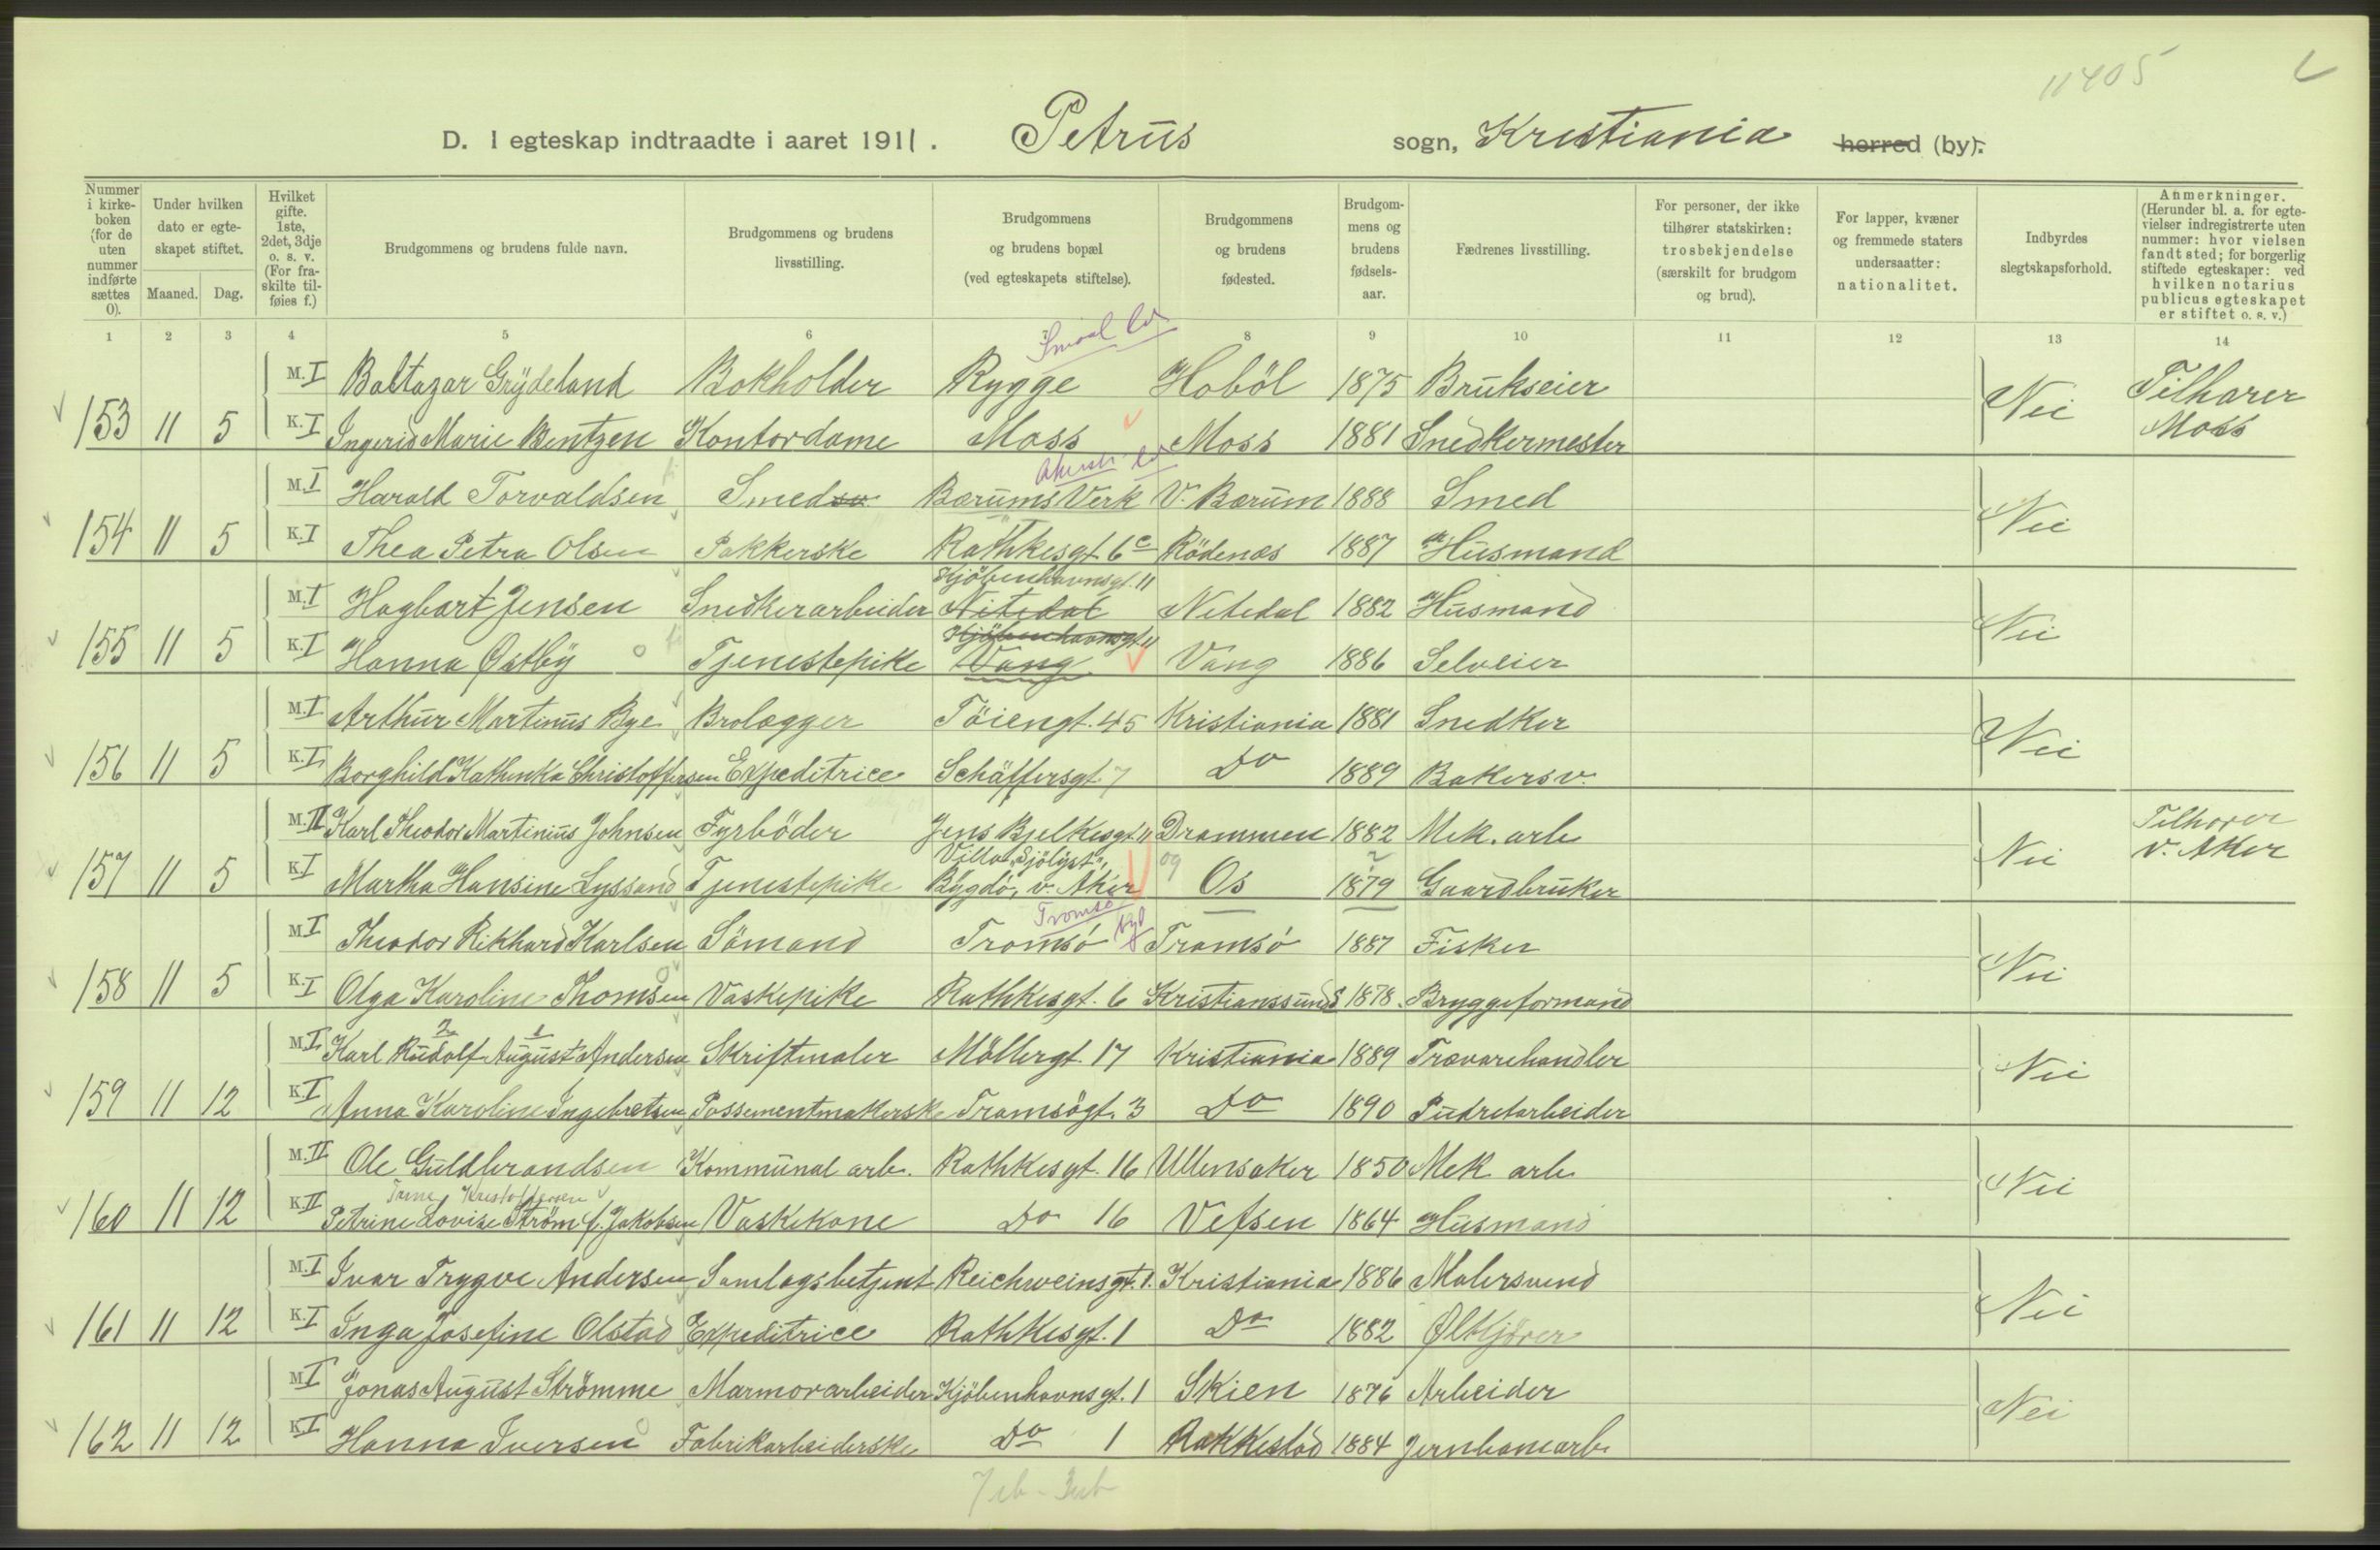 11405
D. I egteskap indtraadte i aaret 1911. Petrus sogn, Kristiania herred (by).
Nummer i kirkeboken (for de uten nummer indførte sættes 0).
Under hvilken dato er egteskapet stiftet.
Maaned. Dag.
Hvilket gifte. 1ste, 2det, 3dje o. s. v. (For fraskilte tilføies f.)
Brudgommens og brudens fulde navn.
Brudgommens og brudens livsstilling.
Brudgommens og brudens bopæl (ved egteskapets stiftelse).
Brudgommens og brudens fødested.
Brudgommens og brudens fødselsaar.
Fædrenes livsstilling.
For personer, der ikke tilhører statskirken: trosbekjendelse (særskilt for brudgom og brud).
For lapper, kvæner og fremmede staters undersaatter: nationalitet.
Indbyrdes slegtskapsforhold.
Anmerkninger. (Herunder bl. a. for egtevielser indregistrerte uten nummer: hvor vielsen fandt sted; for borgerlig stiftede egteskaper: ved hvilken notarius publicus egteskapet er stiftet o. s. v.)
1 2 3 4 5 6 7 8 9 10 11 12 13 14
Smaal
M. I Baltazar Grÿdeland Bokholder Rygge Hoböl 1875 Brukseier Nei Tilhører
153 11 5 K. I Ingerid Marie Bentzen Kontordame Moss Moss 1881 Snedkermester Moss
Akersh.
M. I Harald Torvaldsen Smedsv. Bærums Verk V. Bærum 1888 Smed Nei
154 11 5 K. I Thea Petra Olsen Pakkerske Rathkesgt. 6c Rödenæs 1887 Husmand
Kjöbenhavnsgt. 11
M. I Hagbart Jensen Snedkerarbeider Nitedal Nitedal 1882 Husmand Nei
Kjöbenhavnsgt 11
155 11 5 K. I Hanna Østby Tjenestepike Vang Vang 1886 Selveier
M. I Arthur Martinus Bye Brolægger Töiengt. 45 Kristiania 1881 Snedker Nei
156 11 5 K. I Borghild Kathinka Christoffersen Expeditrice Schäffersgt. 7 Do 1889 Bakersv.
M. II Karl Theodor Martinius Johnsen Fyrböder Jens Bjelkesgt. 11 Drammen 1882 Mek. arb Nei Tilhører
Villa "Sjölyst",
157 11 5 K. I Martha Hansine Lyssand Tjenestepike Bygdö, v. Aker Os 1879 Gaardbruker v. Aker
Tromsö
M. I Theodor Rikhard Karlsen Sömand Tromsö Tromsö 1887 Fisker Nei
158 11 5 K. I Olga Karoline Thomsen Vaskepike Rathkesgt. 6 Kristianssund S 1878 Bryggeformand
2 1
M. I Karl Rudolf August Andersen Skriftmaler Möllergt. 17 Kristiania 1889 Trævarehandler Nei
159 11 12 K. I Anna Karoline Ingebretsen Possementmakerske Tromsögt. 3 Do 1890 Pudretarbeider
M. II Ole Guldbrandsen Kommunal arb. Rathkesgt. 16 Ullensaker 1850 Mek arb Nei
Kristoffersen
160 11 12 K. II Petrine Lovise Strøm f. Jakobsen Vaskekone Do 16 Vefsen 1864 Husmand
M. I Ivar Trygve Andersen Samlagsbetjent Reichweinsgt. 1. Kristiania 1886 Malersvend Nei
161 11 12 K. I Inga Josefine Olstad Expeditrice Rathkesgt. 1 Do 1882 Ølkjører
M. I Jonas August Strömme Marmorarbeider Kjöbenhavnsgt. 1 Skien 1876 Arbeider Nei
162 11 12 K. I Hanna Iversen Fabrikarbeiderske Do 1 Rakkestad 1884 Jernbanearb.